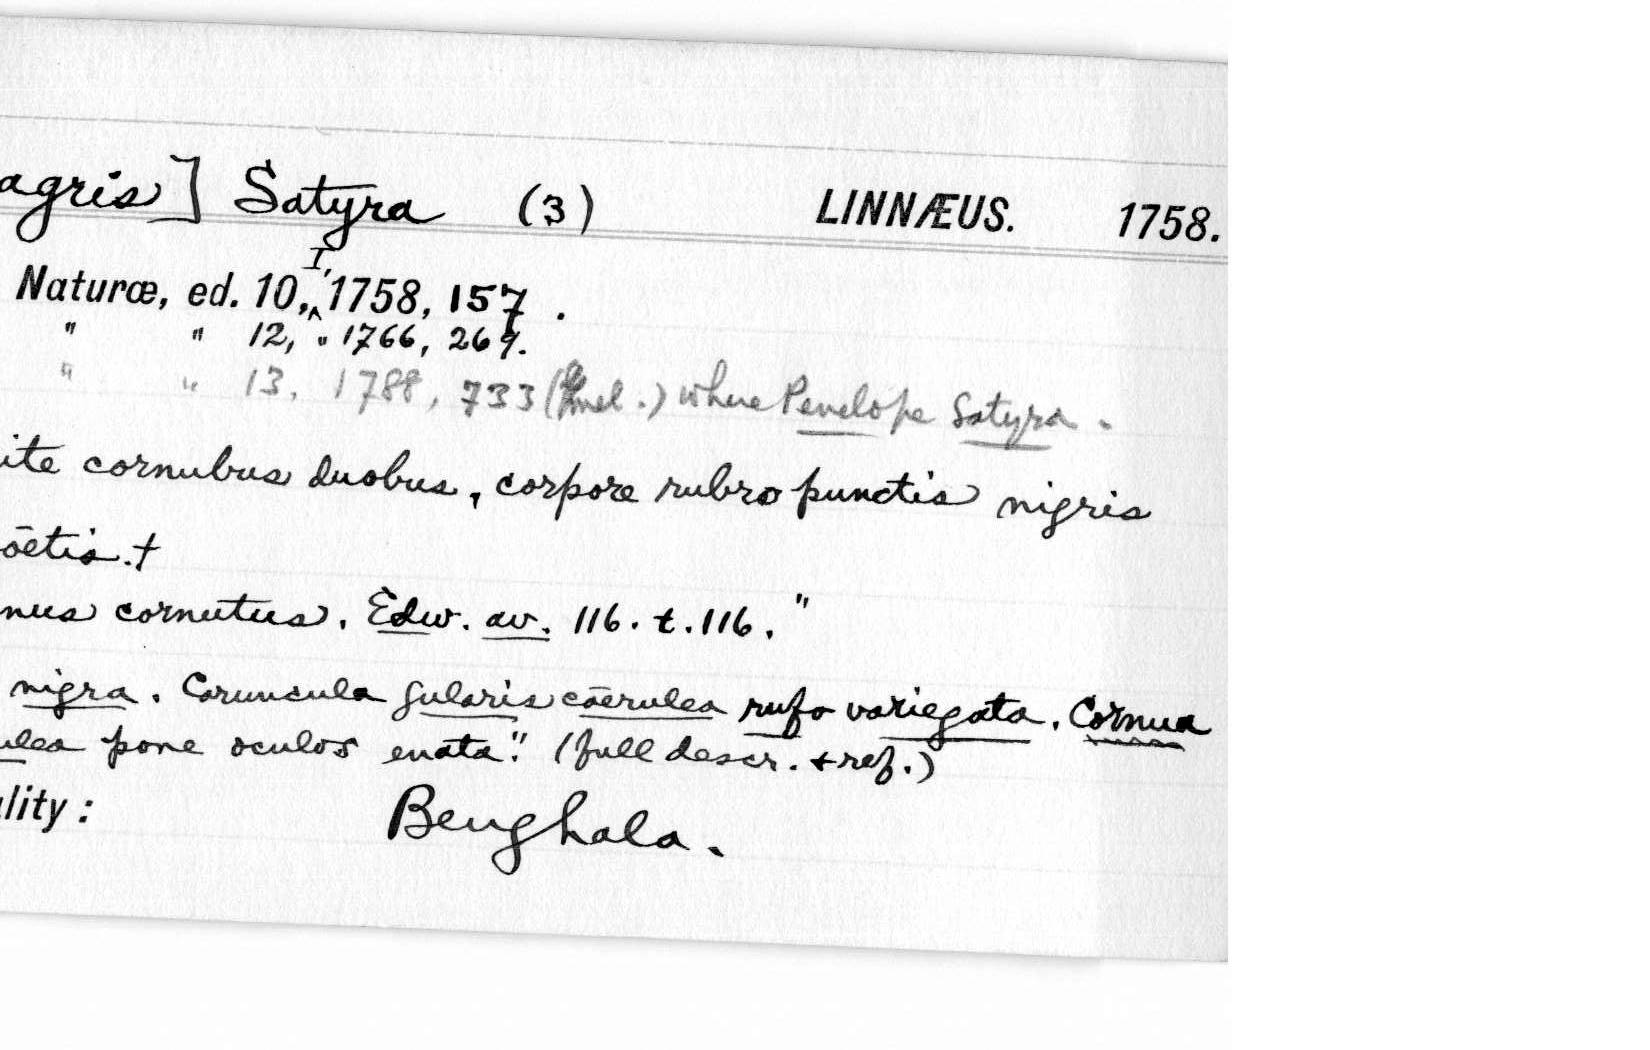 agris] Satyra (3) LINNÆUS. 1758.
Naturæ, ed. 10, I, 1758, 157.
" " 12, " 1766, 269.
" " 13, 1788, 733 (Gmel.) where Penelope Satyra.
ite cornubus duobus, corpore rubro punctis nigris
ōetis.†
nus cornutus. Edw. av. 116. t. 116."
nigra. Caruncula gularis cāerulea rufo variegata. Cornua
ulea pone oculos enata". (full descr. + ref.)
lity: Benghala.